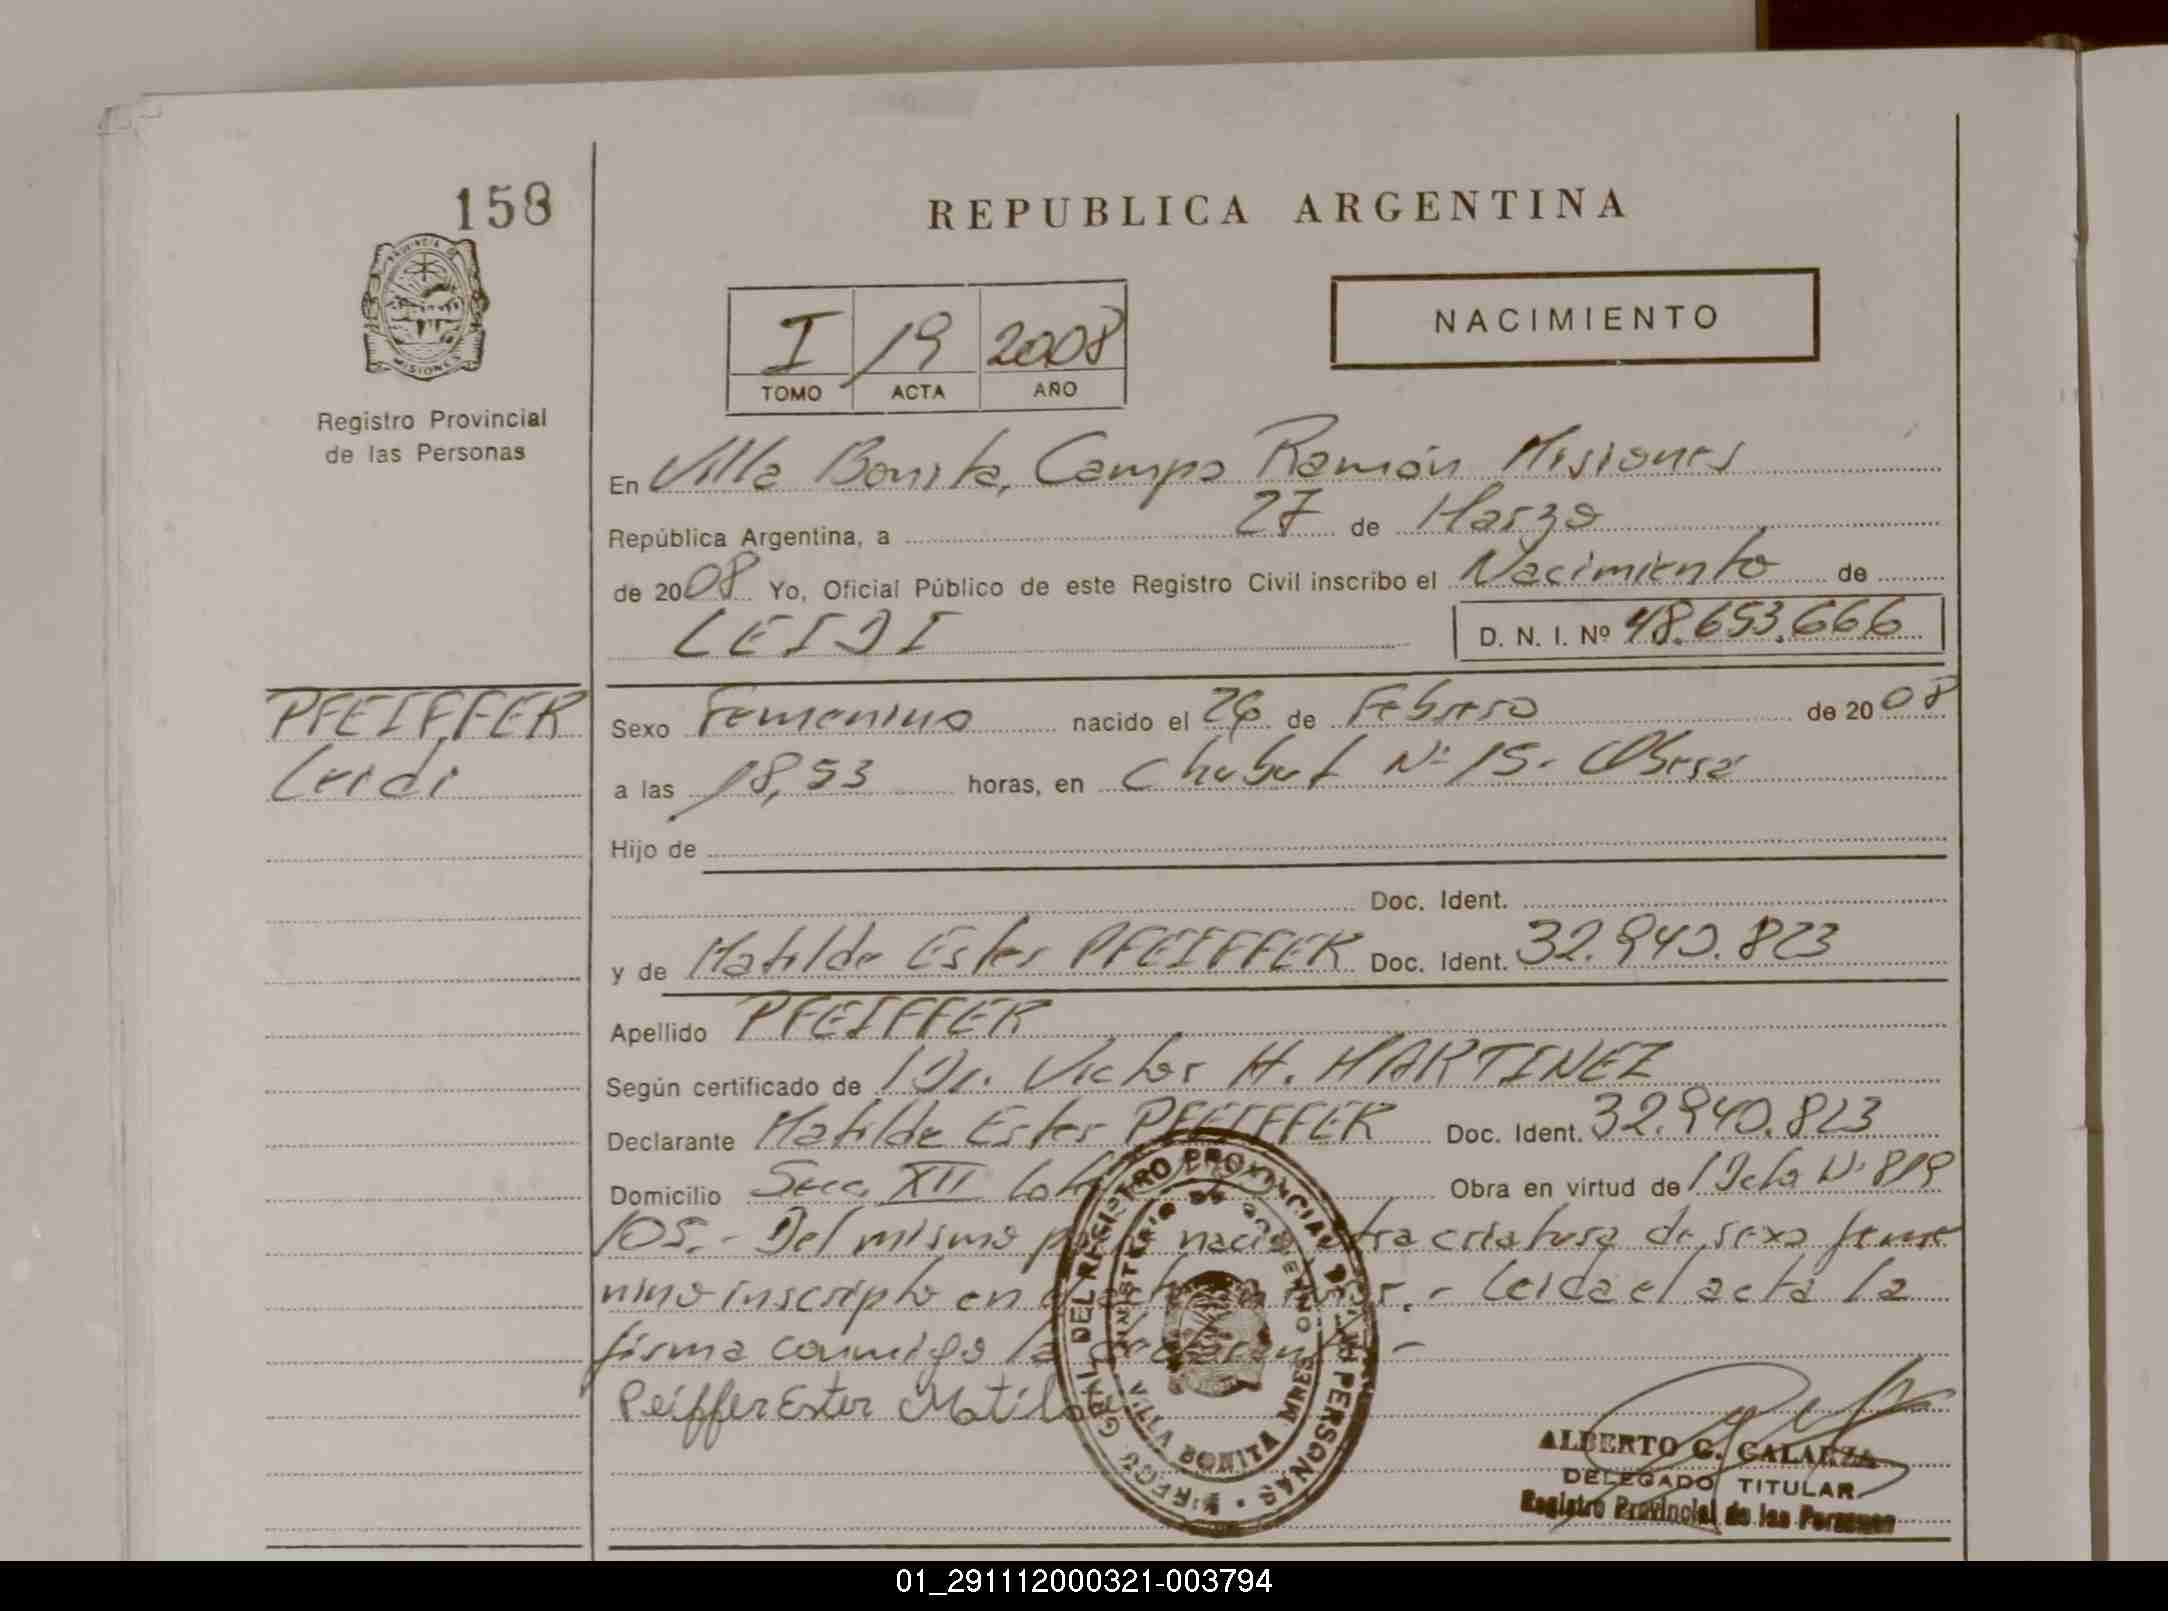 158
PROVINCIA DE
MISIONES
Registro Provincial
de las Personas
REPUBLICA ARGENTINA
I 19 2008
TOMO ACTA AÑO
NACIMIENTO
En Villa Bonita, Campo Ramón Misiones
República Argentina, a 27 de Marzo
de 2008 Yo, Oficial Público de este Registro Civil inscribo el Nacimiento de
LEIDI D. N. I. Nº 48.653.666
PFEIFFER
Leidi
Sexo Femenino nacido el 26 de Febrero de 2008
a las 18,53 horas, en Chubut Nº 15.- Oberá
Hijo de
Doc. Ident.
y de Matilde Ester PFEIFFER Doc. Ident. 32.940.823
Apellido PFEIFFER
Según certificado de Dr. Victor H. MARTINEZ
Declarante Matilde Ester PFEIFFER Doc. Ident. 32.940.823
Domicilio Secc. XII Obra en virtud de Dcto Nº 819
105.- Del mismo nacio otra criatura de sexo feme
nino inscripto en .- Leida el acta la
firma conmigo la declarante.-
Peiffer Ester Matil
DEL REGISTRO PROVINCIAL DE LAS PERSONAS
MINISTERIO DE GOBIERNO
VILLA BONITA MNES
ALBERTO G. GALARZA
DELEGADO TITULAR
Registro Provincial de las Personas
01_291112000321-003794